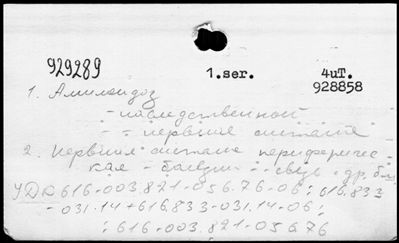 929289 1.ser. 4uT.
928858
1. Амилоидоз
- наследственной
- нервная система
2. Нервная система перифериче-
ская - болезни - связь - др. бол.
УДК 616-003.821-056.76-06 : 616.833
-031.14+616.833-031.14-06 :
: 616-003.821-056.76